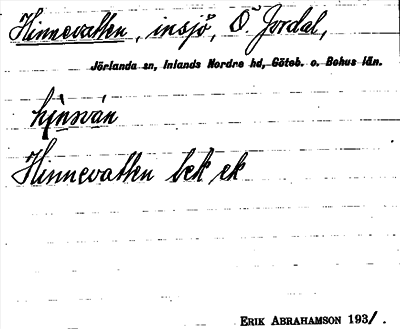 Hinnevatten, insjö, Ö. Jordal,
Jörlanda sn, Inlands Nordre hd, Göteb. o. Bohus län.
hínsván
Hinnevatten bek ek
ERIK ABRAHAMSON 193/.